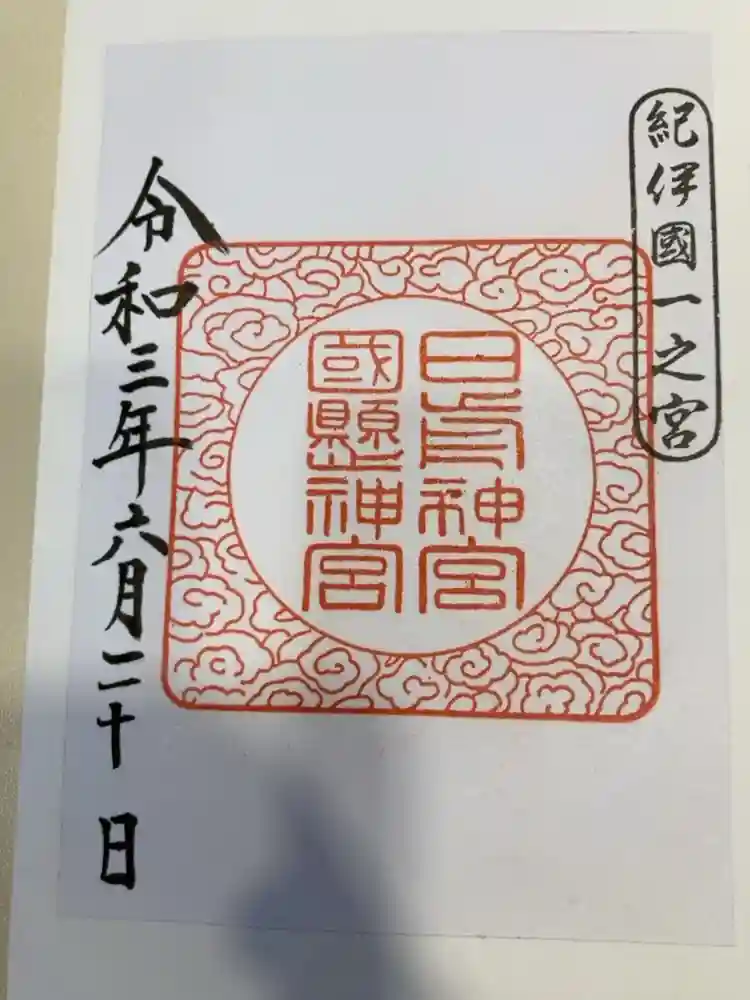 紀伊國一之宮
日前神宮
國懸神宮
令和三年六月二十日